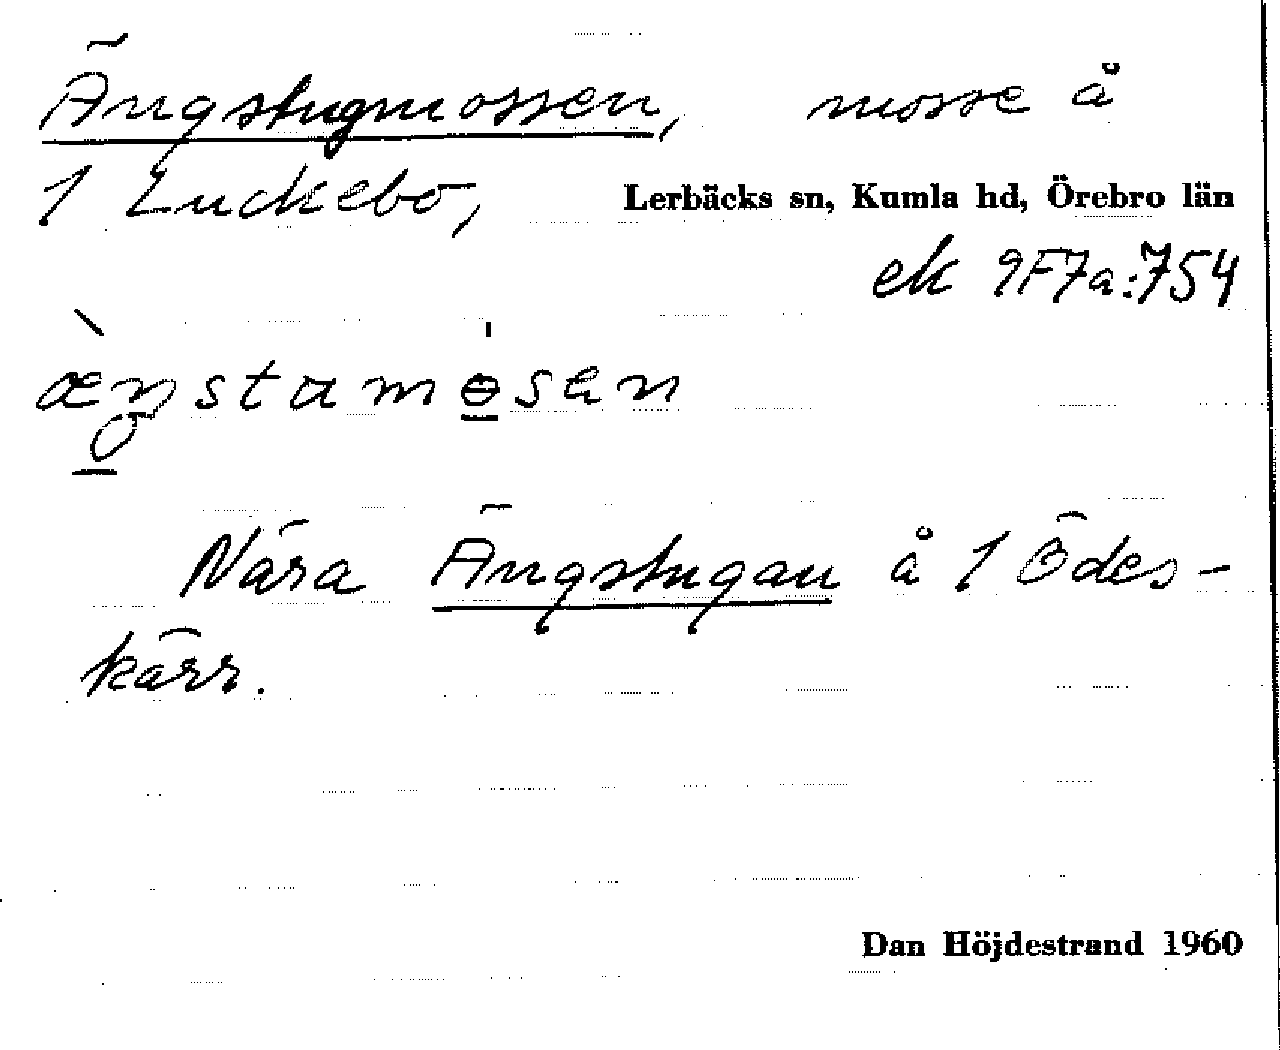 Ängstugmossen, mosse å
1 Luckebo, Lerbäcks sn, Kumla hd, Örebro län
ek 9F7a:754
Nära Ängstugan å 1 Ödes-
kärr.
Dan Höjdestrand 1960